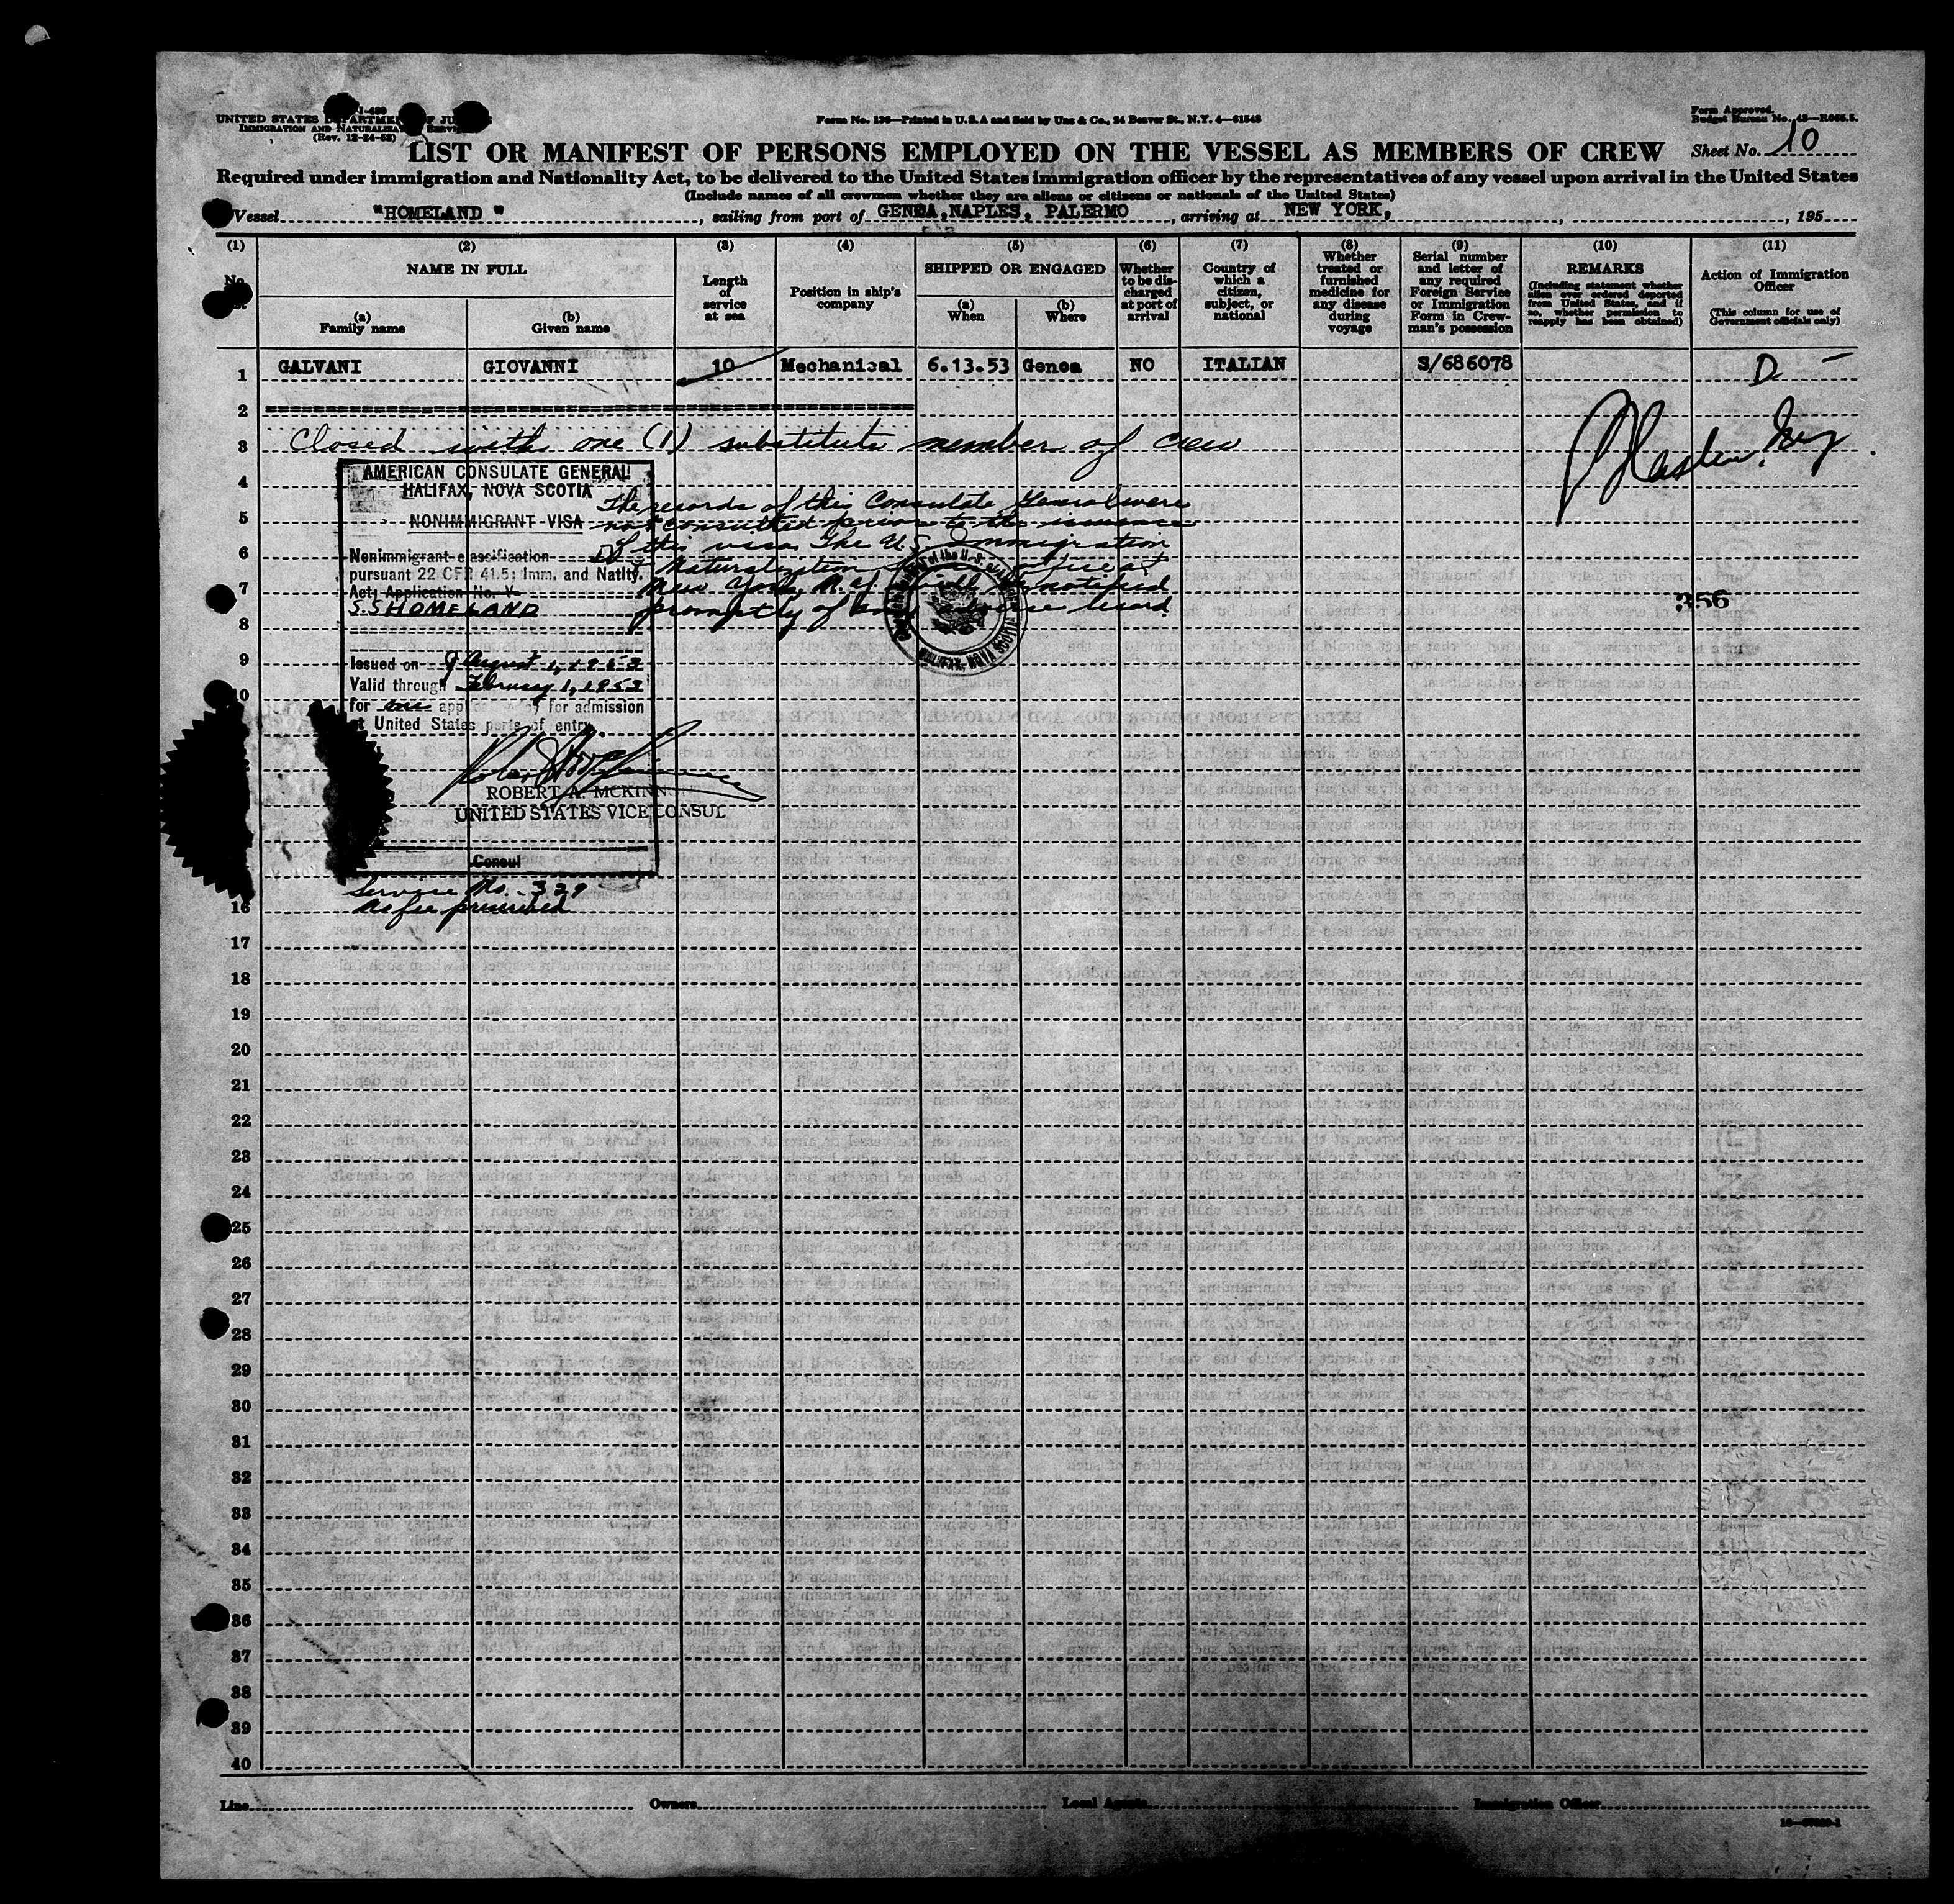 I-489
UNITED STATES DEPARTMENT OF JUSTICE
IMMIGRATION AND NATURALIZATION SERVICE
(Rev. 12-24-52)
Form No. 136—Printed in U.S.A and Sold by Unz & Co., 24 Beaver St., N.Y. 4—61543
Form Approved.
Budget Bureau No. 43—R065.5.
LIST OR MANIFEST OF PERSONS EMPLOYED ON THE VESSEL AS MEMBERS OF CREW
Sheet No. 10
Required under immigration and Nationality Act, to be delivered to the United States immigration officer by the representatives of any vessel upon arrival in the United States
(Include names of all crewmen whether they are aliens or citizens or nationals of the United States)
Vessel "HOMELAND ", sailing from port of GENOA,NAPLES, PALERMO, arriving at NEW YORK, , 195
(1) (2) (3) (4) (5) (6) (7) (8) (9) (10) (11)
No.
NAME IN FULL
(a) Family name
(b) Given name
Length of service at sea
Position in ship's company
SHIPPED OR ENGAGED
(a) When
(b) Where
Whether to be discharged at port of arrival
Country of which a citizen, subject, or national
Whether treated or furnished medicine for any disease during voyage
Serial number and letter of any required Foreign Service or Immigration Form in Crewman's possession
REMARKS
(Including statement whether alien ever ordered deported from United States, and if so, whether permission to reapply has been obtained)
Action of Immigration Officer
(This column for use of Government officials only)
1 GALVANI GIOVANNI 10 Mechanical 6.13.53 Genoa NO ITALIAN S/686078 D —
2
3 Closed with one (1) substitute member of crew
4
5
6
7
8
9
10
AMERICAN CONSULATE GENERAL
HALIFAX, NOVA SCOTIA
NONIMMIGRANT VISA
Nonimmigrant classification D
pursuant 22 CFR 41.5; Imm. and Natlty.
Act; Application No. V-
S.S HOMELAND
Issued on August 1, 1953
Valid through February 1, 1953
for one application for admission
at United States ports of entry.
ROBERT A. MCKINNON
UNITED STATES VICE CONSUL
Consul
Service No. 329
No fee prescribed
The records of this Consulate General were
not consulted prior to the issuance
of this visa. The U.S. Immigration
& Naturalization office at
New York, N.Y. will be notified
promptly of any adverse record
of the U.S.
HALIFAX, NOVA SCOTIA
356
16
17
18
19
20
21
22
23
24
25
26
27
28
29
30
31
32
33
34
35
36
37
38
39
40
Line Owners Local Agents Immigration Officer